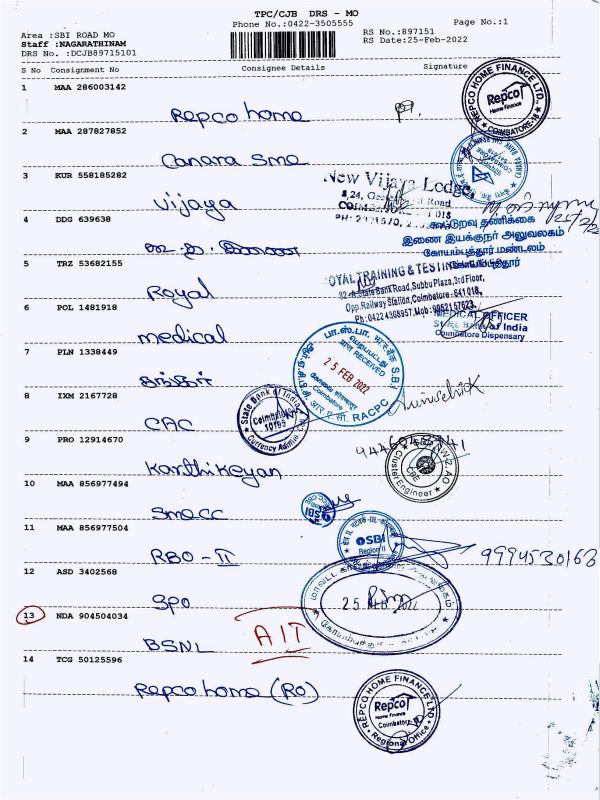 TPC/CJB DRS - MO
Phone No.:0422-3505555
Page No.:1
Area :SBI ROAD MO
Staff :NAGARATHINAM
DRS No. :DCJB89715101
RS No.:897151
RS Date:25-Feb-2022
S No Consignment No Consignee Details Signature
1 MAA 286003142
Repco home
REPCO HOME FINANCE LTD.
Repco
Home Finance
COIMBATORE-18
2 MAA 287827852
Canara Sme
3 KUR 558185282
Vijaya
New Vijaya Lodge,
4 DDG 639638
கூட்டுறவு தணிக்கை
இணை இயக்குநர் அலுவலகம்
கோயம்புத்தூர் மண்டலம்
கோயம்புத்தூர்
5 TRZ 53682155
Royal
OYAL TRAINING & TESTING
32-A, State Bank Road, Subbu Plaza, 3rd Floor,
Opp. Railway Station, Coimbatore - 641018,
Ph: 0422 4368957, Mob: 9952157623
6 POL 1481918
medical
MEDICAL OFFICER
State Bank of India
Coimbatore Dispensary
7 PLN 1338449
RECEIVED
25 FEB 2022
Coimbatore
S.B.I
RACPC
8 IXM 2167728
CAC
State Bank of India
Coimbatore
Currency Admin
9 PRO 12914670
Karthikeyan
Cluster Engineer
10 MAA 856977494
Smecc
SBI
11 MAA 856977504
RBO - II
SBI
Region II
9994530163
12 ASD 3402568
SPO
25 FEB 2022
13 NDA 904504034
BSNL
AIT
14 TCG 50125596
Repco home (RO)
REPCO HOME FINANCE LTD.
Repco
Home Finance
Coimbatore
Regional Office